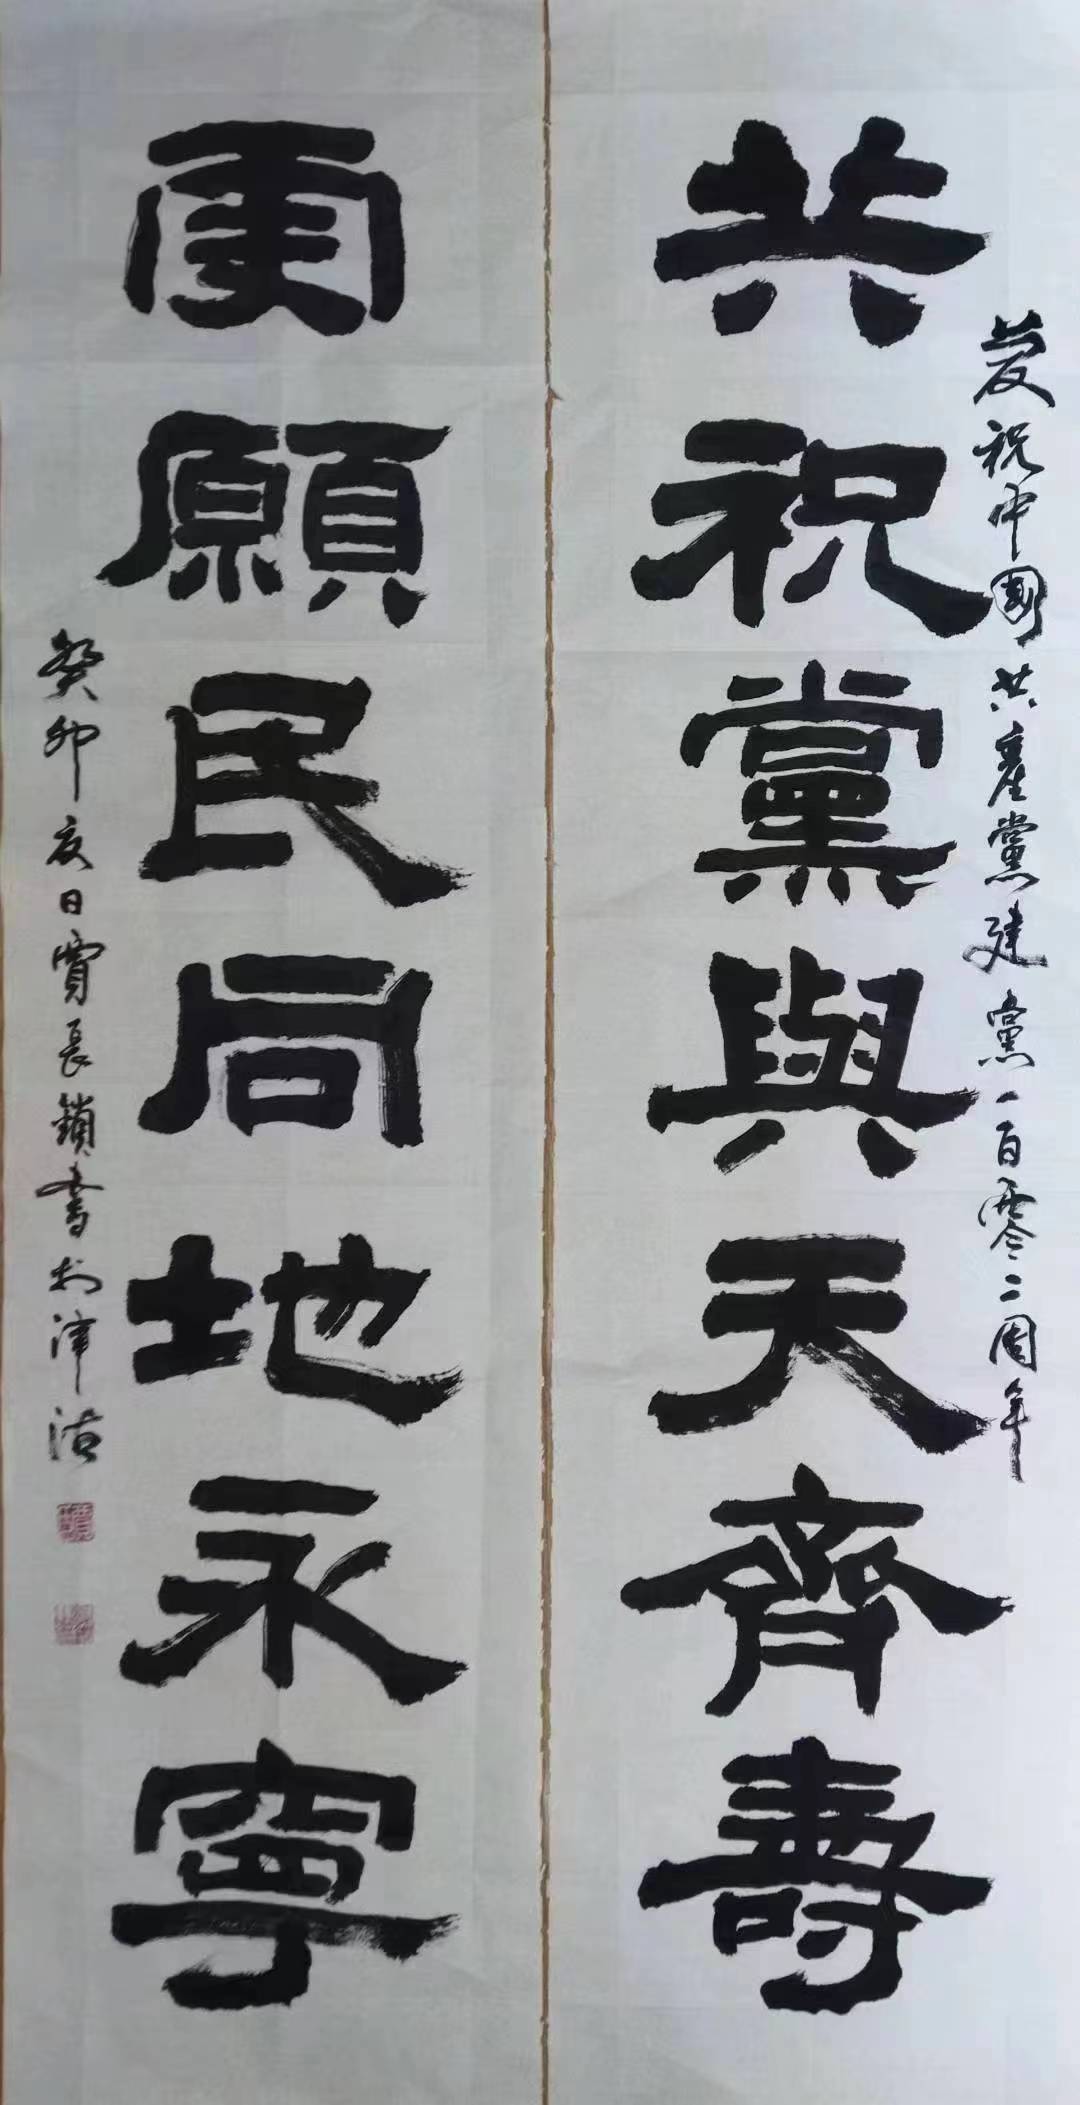 慶祝中國共產黨建黨一百零二周年
共祝黨與天齊壽
更願民同地永寧
癸卯夏日賈長鎖書於津沽